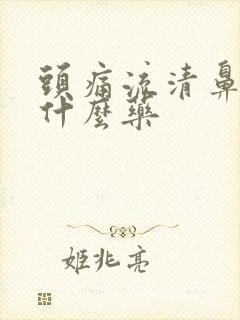 頭痛流清鼻
什麼藥
姬兆亮